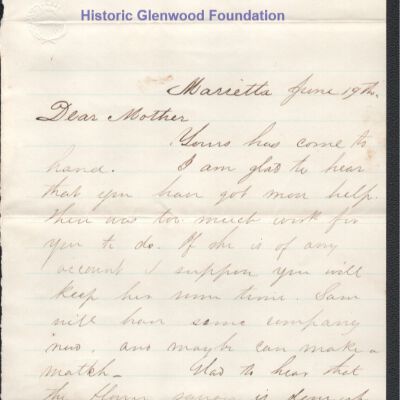 Historic Glenwood Foundation
Marietta June 19th.
Dear Mother
Yours has come to
hand. I am glad to hear
that you have got more help.
there was too much work for
you to do. If she is of any
account I suppose you will
keep her some time. Sam
will have some company
now, and maybe can make a
match - Glad to hear that
the flower garden is